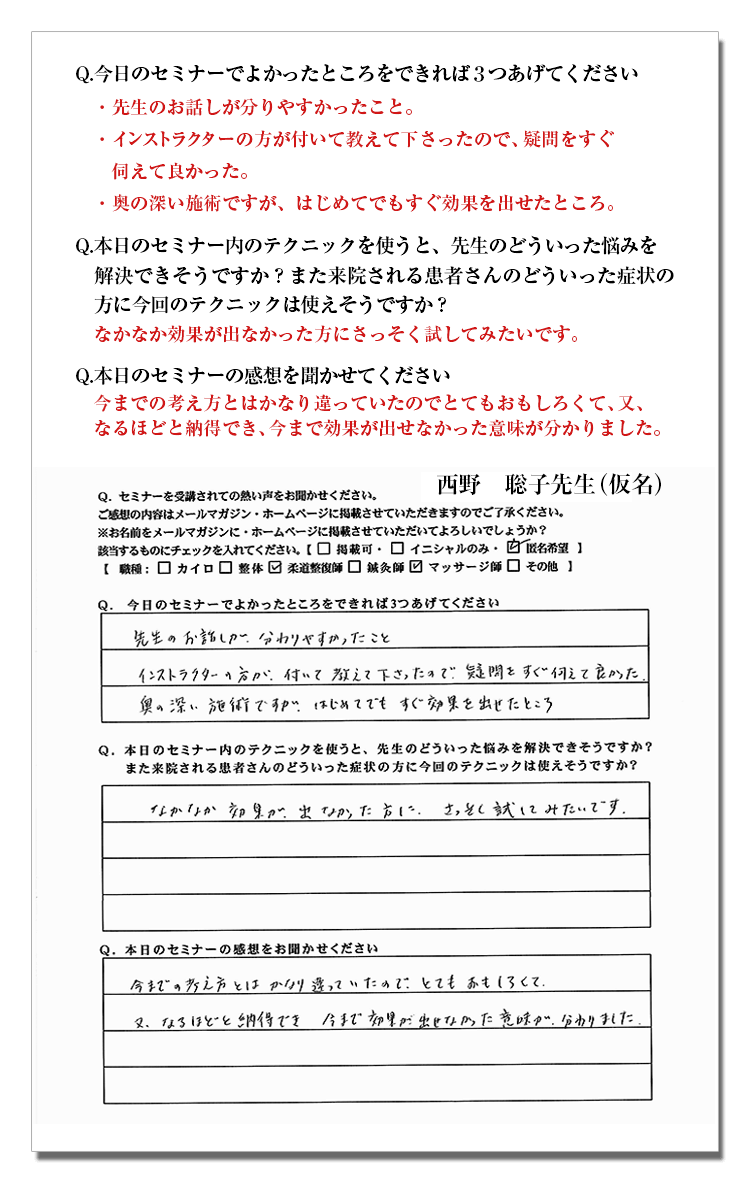 Q.今日のセミナーでよかったところをできれば３つあげてください
・先生のお話しが分りやすかったこと。
・インストラクターの方が付いて教えて下さったので、疑問をすぐ
伺えて良かった。
・奥の深い施術ですが、はじめてでもすぐ効果を出せたところ。
Q.本日のセミナー内のテクニックを使うと、先生のどういった悩みを
解決できそうですか？また来院される患者さんのどういった症状の
方に今回のテクニックは使えそうですか？
なかなか効果が出なかった方にさっそく試してみたいです。
Q.本日のセミナーの感想を聞かせてください
今までの考え方とはかなり違っていたのでとてもおもしろくて、又、
なるほどと納得でき、今まで効果が出せなかった意味が分かりました。
西野　聡子先生（仮名）
Q．セミナーを受講されての熱い声をお聞かせください。
ご感想の内容はメールマガジン・ホームページに掲載させていただきますのでご了承ください。
※お名前をメールマガジンに・ホームページに掲載させていただいてよろしいでしょうか？
該当するものにチェックを入れてください。【 □ 掲載可・ □ イニシャルのみ・ ☑ 匿名希望 】
【 職種： □ カイロ □ 整体 ☑ 柔道整復師 □ 鍼灸師 ☑ マッサージ師 □ その他 】
Q． 今日のセミナーでよかったところをできれば3つあげてください
先生のお話しが、分わりやすかったこと
インストラクターの方が、付いて教えて下さったので、疑問をすぐ伺えて良かった.
奥の深い施術ですが、はじめてでもすぐ効果を出せたところ
Q．本日のセミナー内のテクニックを使うと、先生のどういった悩みを解決できそうですか？
また来院される患者さんのどういった症状の方に今回のテクニックは使えそうですか？
なかなか効果が、出なかった方に、さっそく試してみたいです.
Q．本日のセミナーの感想をお聞かせください
今までの考え方とはかなり違っていたので、とてもおもしろくて.
又、なるほどと納得でき 今まで効果が出せなかった意味が、分わりました.